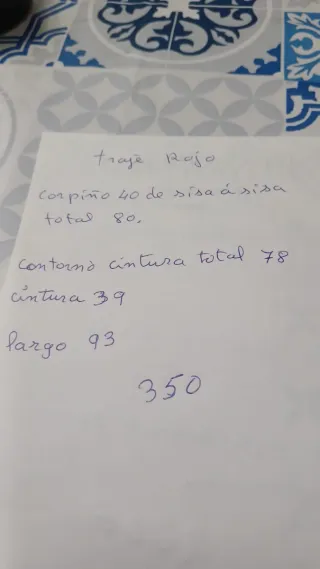 traje Rojo
corpiño 40 de sisa á sisa
total 80.
contorno cintura total 78
cintura 39
largo 93
350